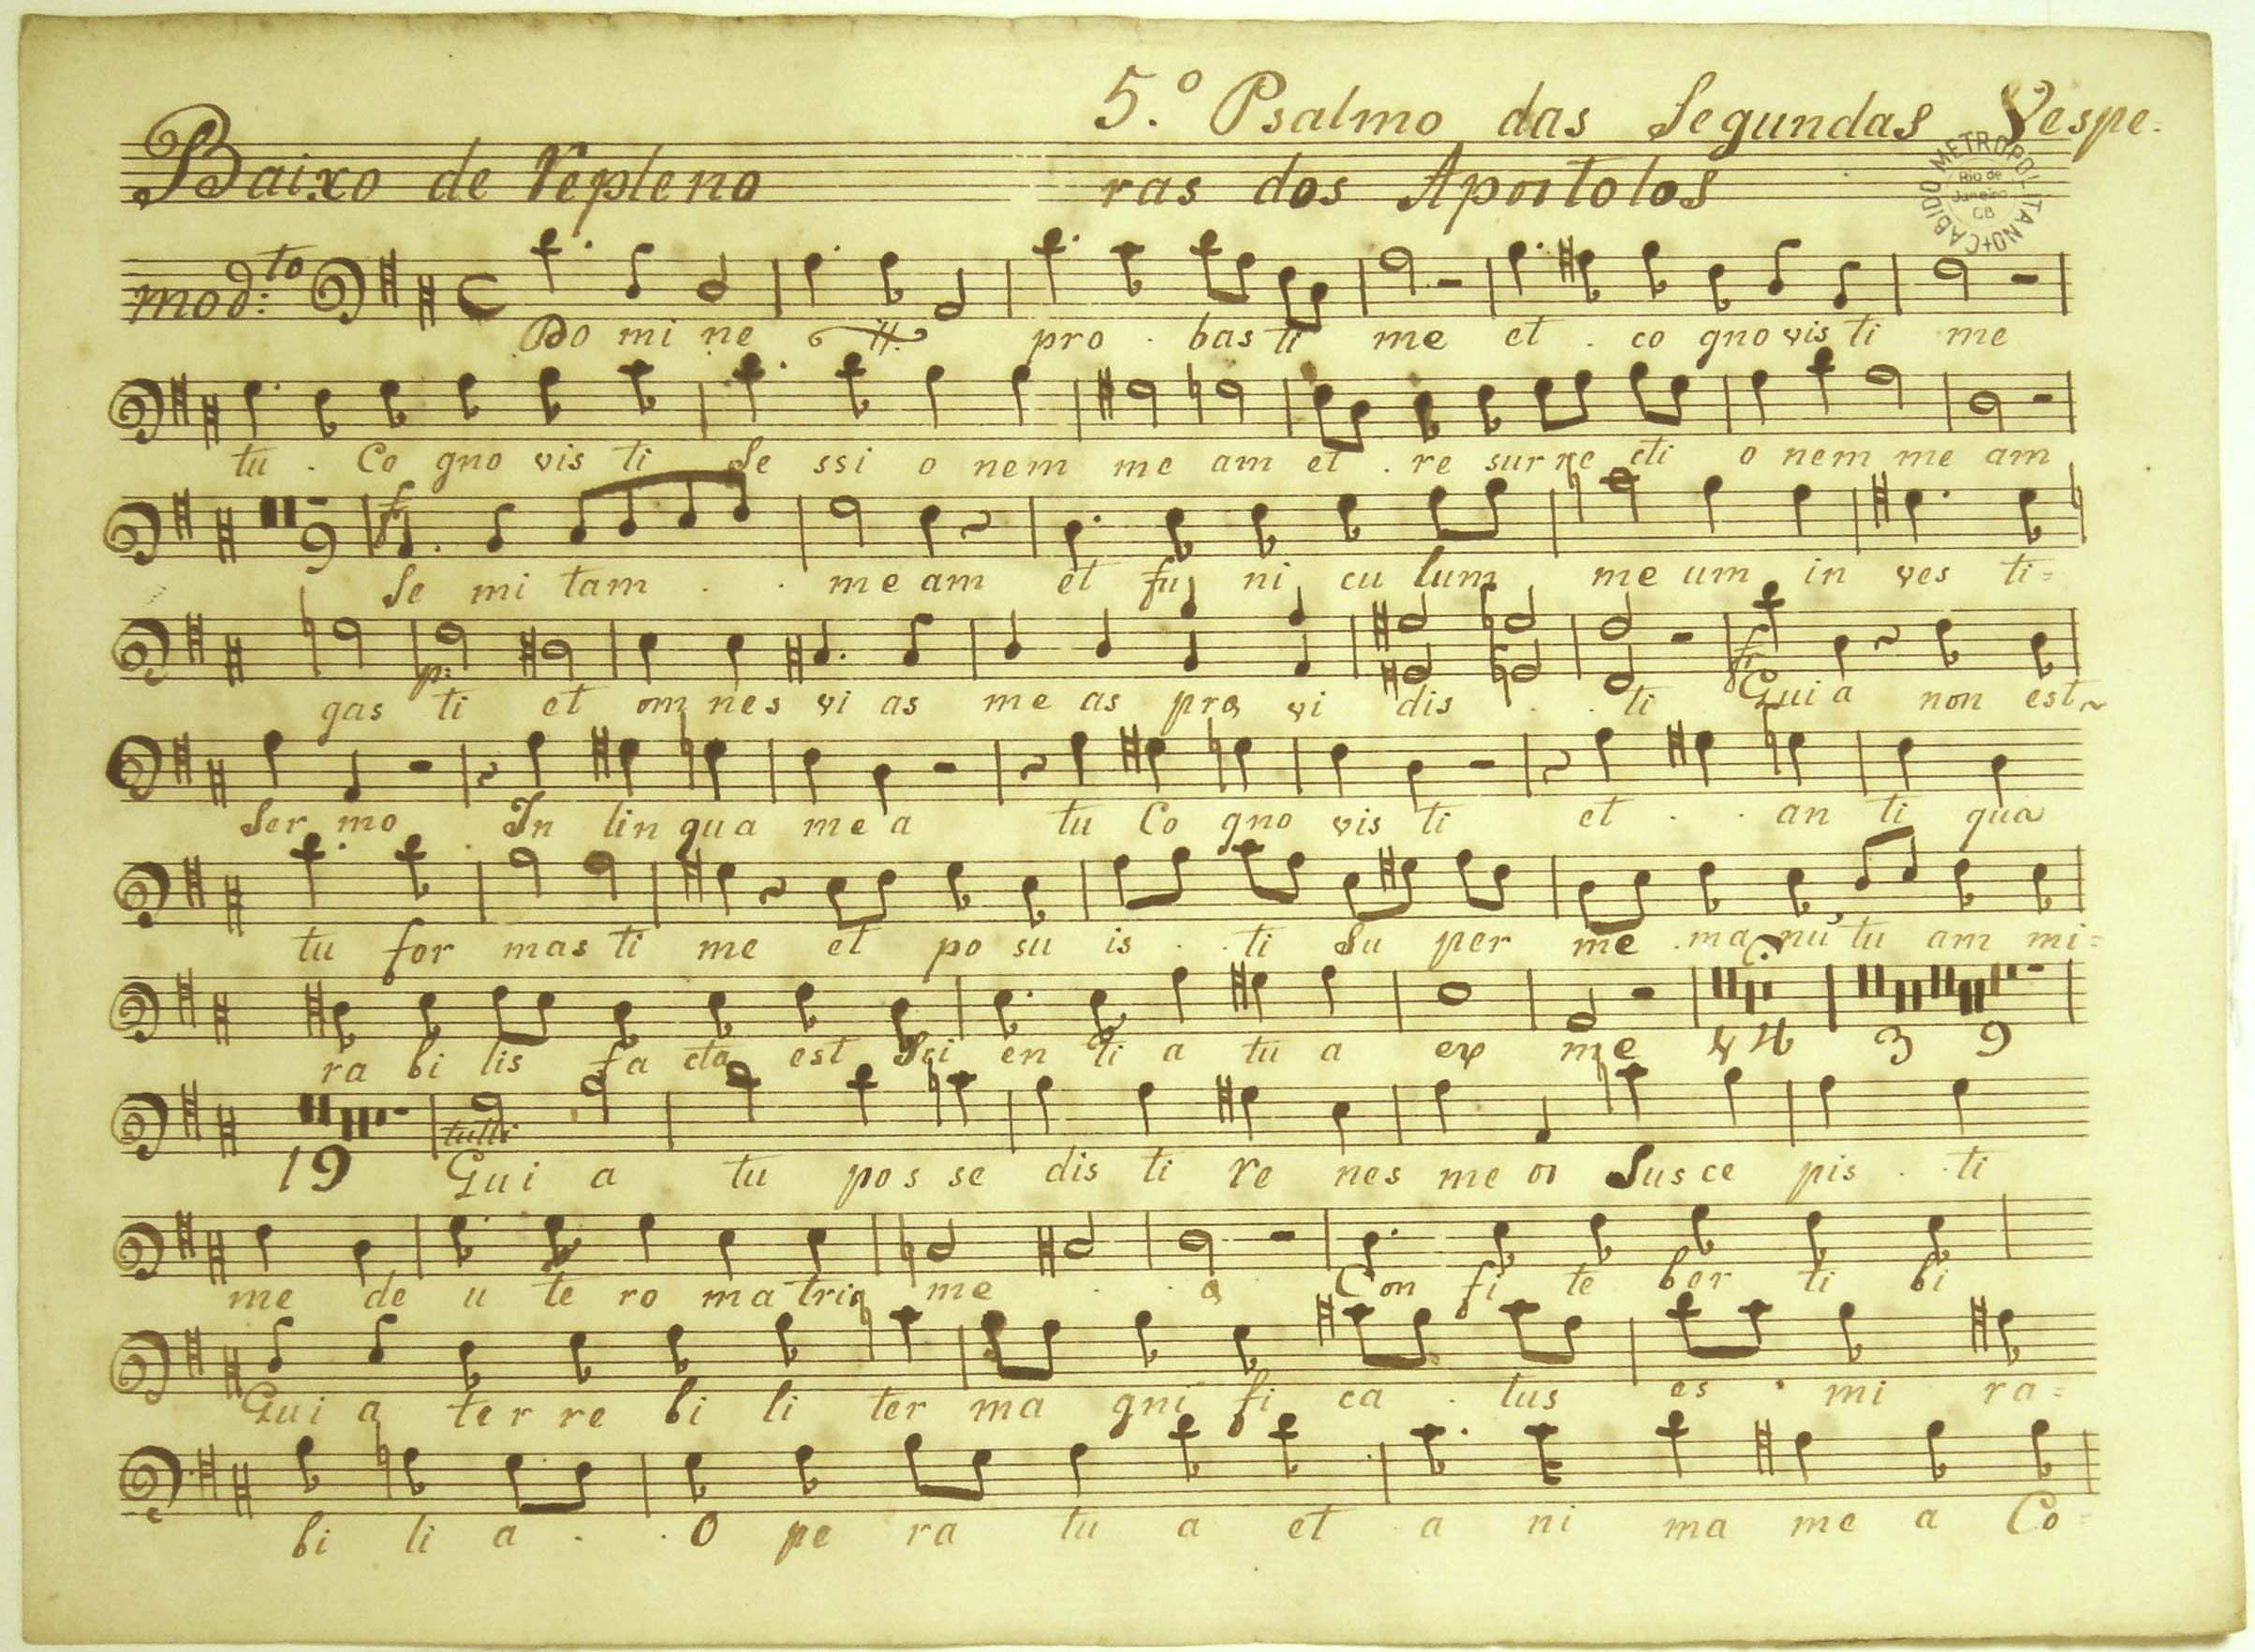 5.º Psalmo das Segundas Vespe-
Baixo de repleno
ras dos Apostolos
CABIDO METROPOLITANO
Rio de Janeiro
CB
mod:to
Do mi ne pro . bas ti me et . co gno vis ti me
tu . Co gno vis ti Se ssi o nem me am et . re sur re cti o nem me am
9 f
Se mi tam . . me am et fu ni cu lum me um in ves ti=
p: f
gas ti et om nes vi as me as pre vi dis . . ti Qui a non est
Ser mo In lin gua me a tu Co gno vis ti et . . an ti qua
tu for mas ti me et po su is . . ti Su per me . ma nu tu am mi=
ra bi lis fa cta est Sci en ti a tu a ex me 44 39
tutti
19 Qui a tu pos se dis ti re nes me os Sus ce pis . . ti
me de u te ro ma tris me . . a Con fi te bor ti bi
Qui a ter re bi li ter ma gni fi ca . tus es . mi ra=
bi li a . . O pe ra tu a et a ni ma me a Co=